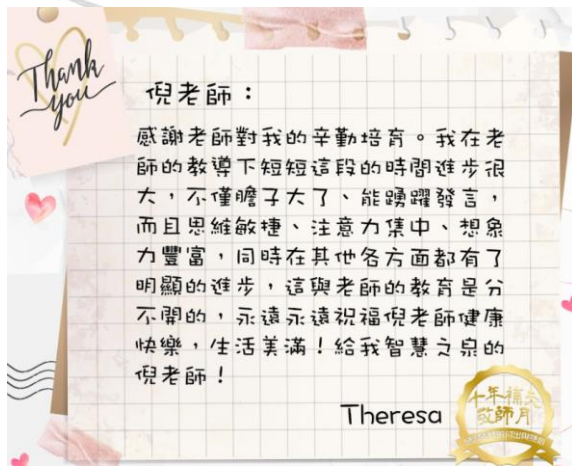 Thank
you
倪老師：
感謝老師對我的辛勤培育。我在老
師的教導下短短這段的時間進步很
大，不僅膽子大了、能踴躍發言，
而且思維敏捷、注意力集中、想象
力豐富，同時在其他各方面都有了
明顯的進步，這與老師的教育是分
不開的，永遠永遠祝福倪老師健康
快樂，生活美滿！給我智慧之泉的
倪老師！
Theresa
十年補天
敬師月